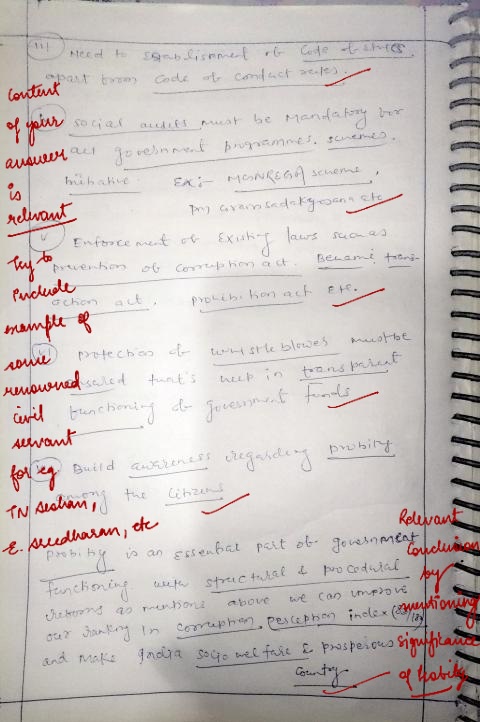 iii) Need to establishment of Code of ethics
apart from Code of conduct rules.
iv) social audits must be Mandatory for
all government programmes, schemes,
Initiative. Ex:- MGNREGA scheme,
etc
v Enforcement of Existing laws such as
prevention of corruption act. Benami trans-
action act, prohibition act etc.
vi) protection of whistle blower must be
that's help in transparent
functioning of government funds
Build awareness regarding probity
among the citizens
probity is an essential part of government
functioning with structural & procedural
reforms as mentions above we can improve
our ranking in corruption perception index
and make India socio welfare & prosperous
country
content
of your
answer
is
relevant
Try to
include
example of
some
renowned
civil
servant
for eg
TN seshan,
E. sreedharan, etc
Relevant
conclusion
by
mentioning
significance
of Probity